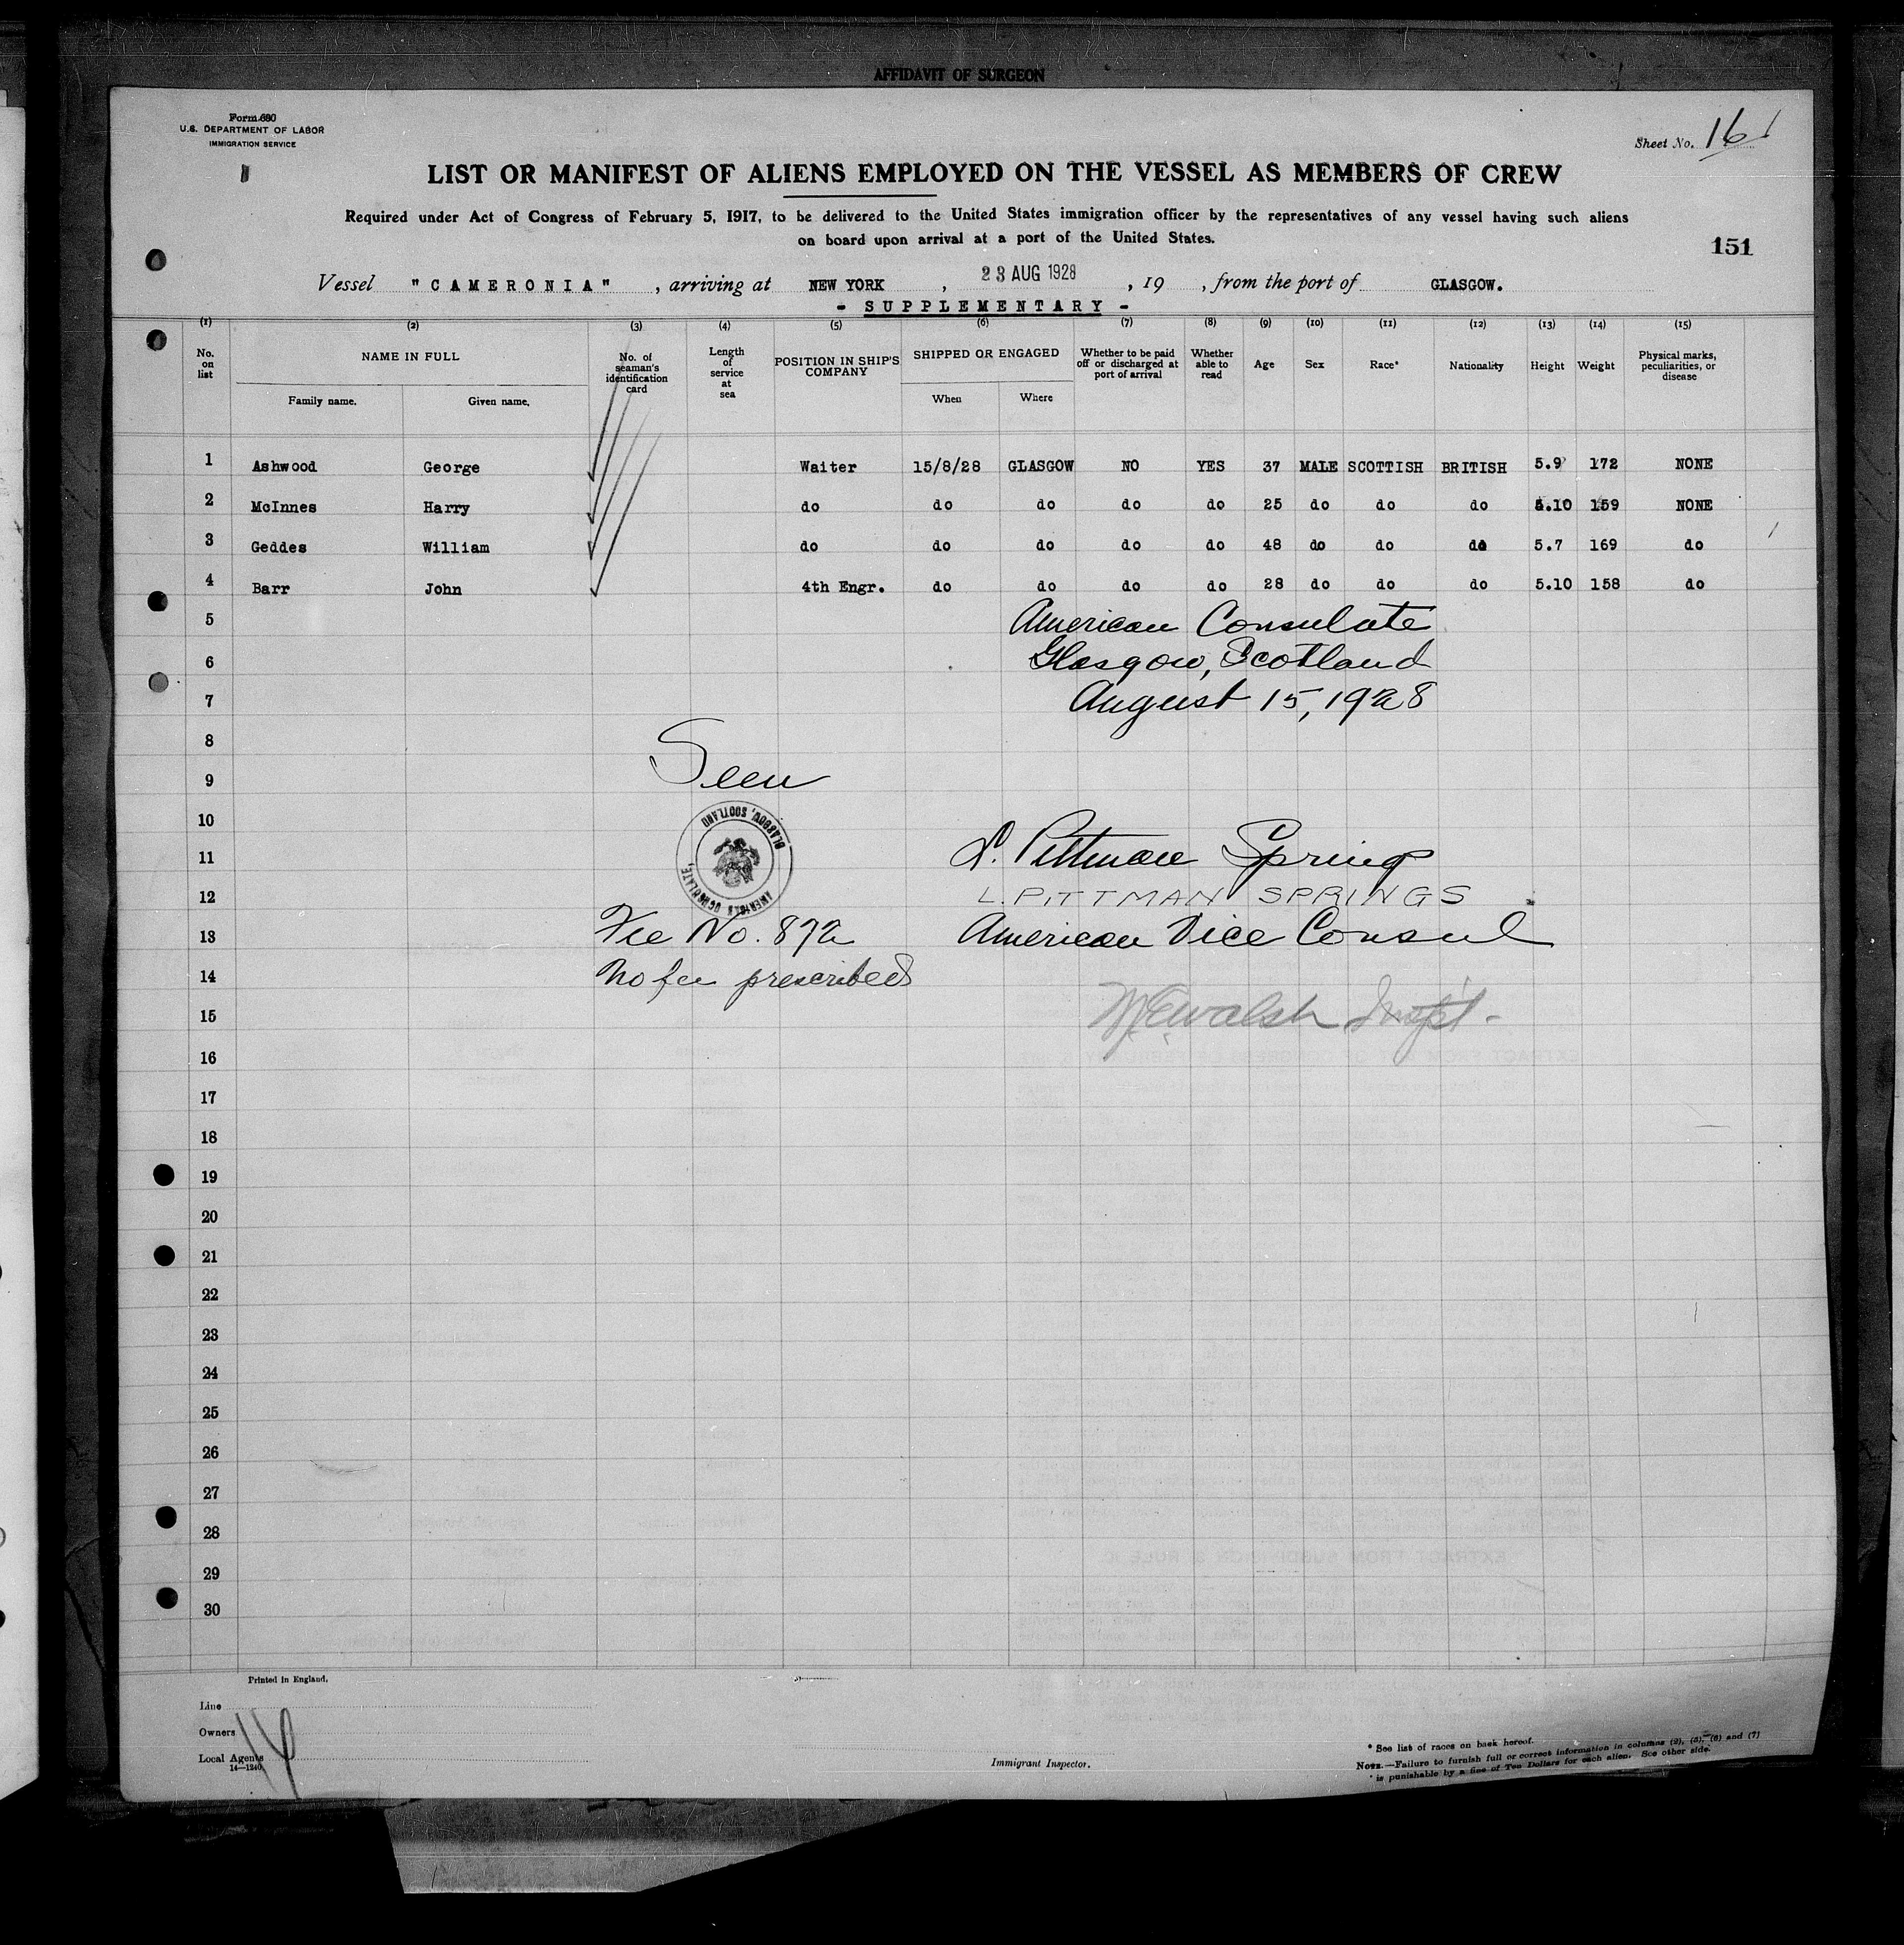 AFFIDAVIT OF SURGEON
Form 680
U.S. DEPARTMENT OF LABOR
IMMIGRATION SERVICE
Sheet No. 16
LIST OR MANIFEST OF ALIENS EMPLOYED ON THE VESSEL AS MEMBERS OF CREW
Required under Act of Congress of February 5, 1917, to be delivered to the United States immigration officer by the representatives of any vessel having such aliens
on board upon arrival at a port of the United States.
151
Vessel "CAMERONIA", arriving at NEW YORK, 23 AUG 1928, 19 , from the port of GLASGOW.
- SUPPLEMENTARY -
(1) (2) (3) (4) (5) (6) (7) (8) (9) (10) (11) (12) (13) (14) (15)
No. on list NAME IN FULL No. of seaman's identification card Length of service at sea POSITION IN SHIP'S COMPANY SHIPPED OR ENGAGED Whether to be paid off or discharged at port of arrival Whether able to read Age Sex Race* Nationality Height Weight Physical marks, peculiarities, or disease
Family name. Given name. When Where
1 Ashwood George Waiter 15/8/28 GLASGOW NO YES 37 MALE SCOTTISH BRITISH 5.9 172 NONE
2 McInnes Harry do do do do do 25 do do do 5.10 159 NONE
3 Geddes William do do do do do 48 do do do 5.7 169 do
4 Barr John 4th Engr. do do do do 28 do do do 5.10 158 do
5 American Consulate
6 Glasgow, Scotland
7 August 15, 1928
8
9 Seen
10 GLASGOW, SCOTLAND
11 L. Pittman Springs
AMERICAN CONSULATE,
12 L. PITTMAN SPRINGS
13 Fee No. 872 American Vice Consul
14 No fee prescribed
15 W.E. Walsh Inspt.
16
17
18
19
20
21
22
23
24
25
26
27
28
29
30
Printed in England.
Line
Owners
Local Agents
14—1240
Immigrant Inspector.
* See list of races on back hereof.
NOTE.—Failure to furnish full or correct information in columns (2), (5), (6) and (7)
is punishable by a fine of Ten Dollars for each alien. See other side.